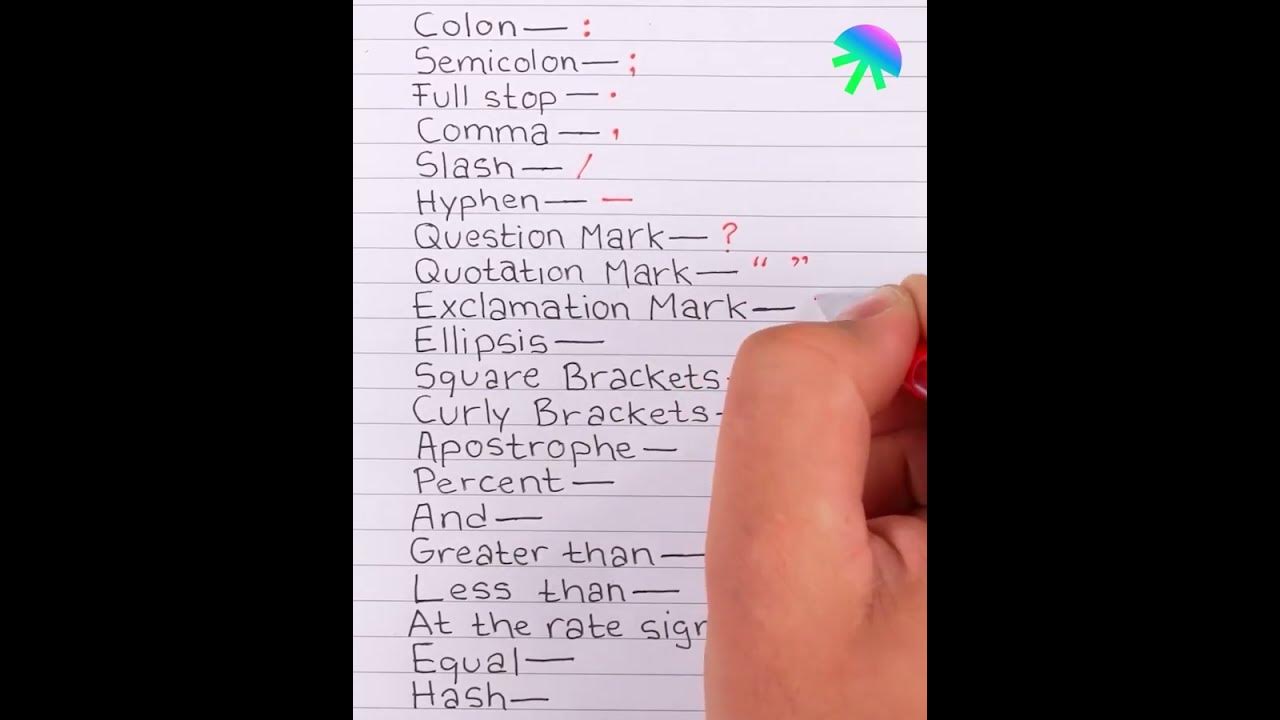 Colon— :
Semicolon— ;
Full stop — .
Comma — ,
Slash — /
Hyphen — —
Question Mark — ?
Quotation Mark — “ ”
Exclamation Mark —
Ellipsis —
Square Brackets
Curly Brackets-
Apostrophe —
Percent —
And —
Greater than —
Less than —
At the rate sign
Equal —
Hash —